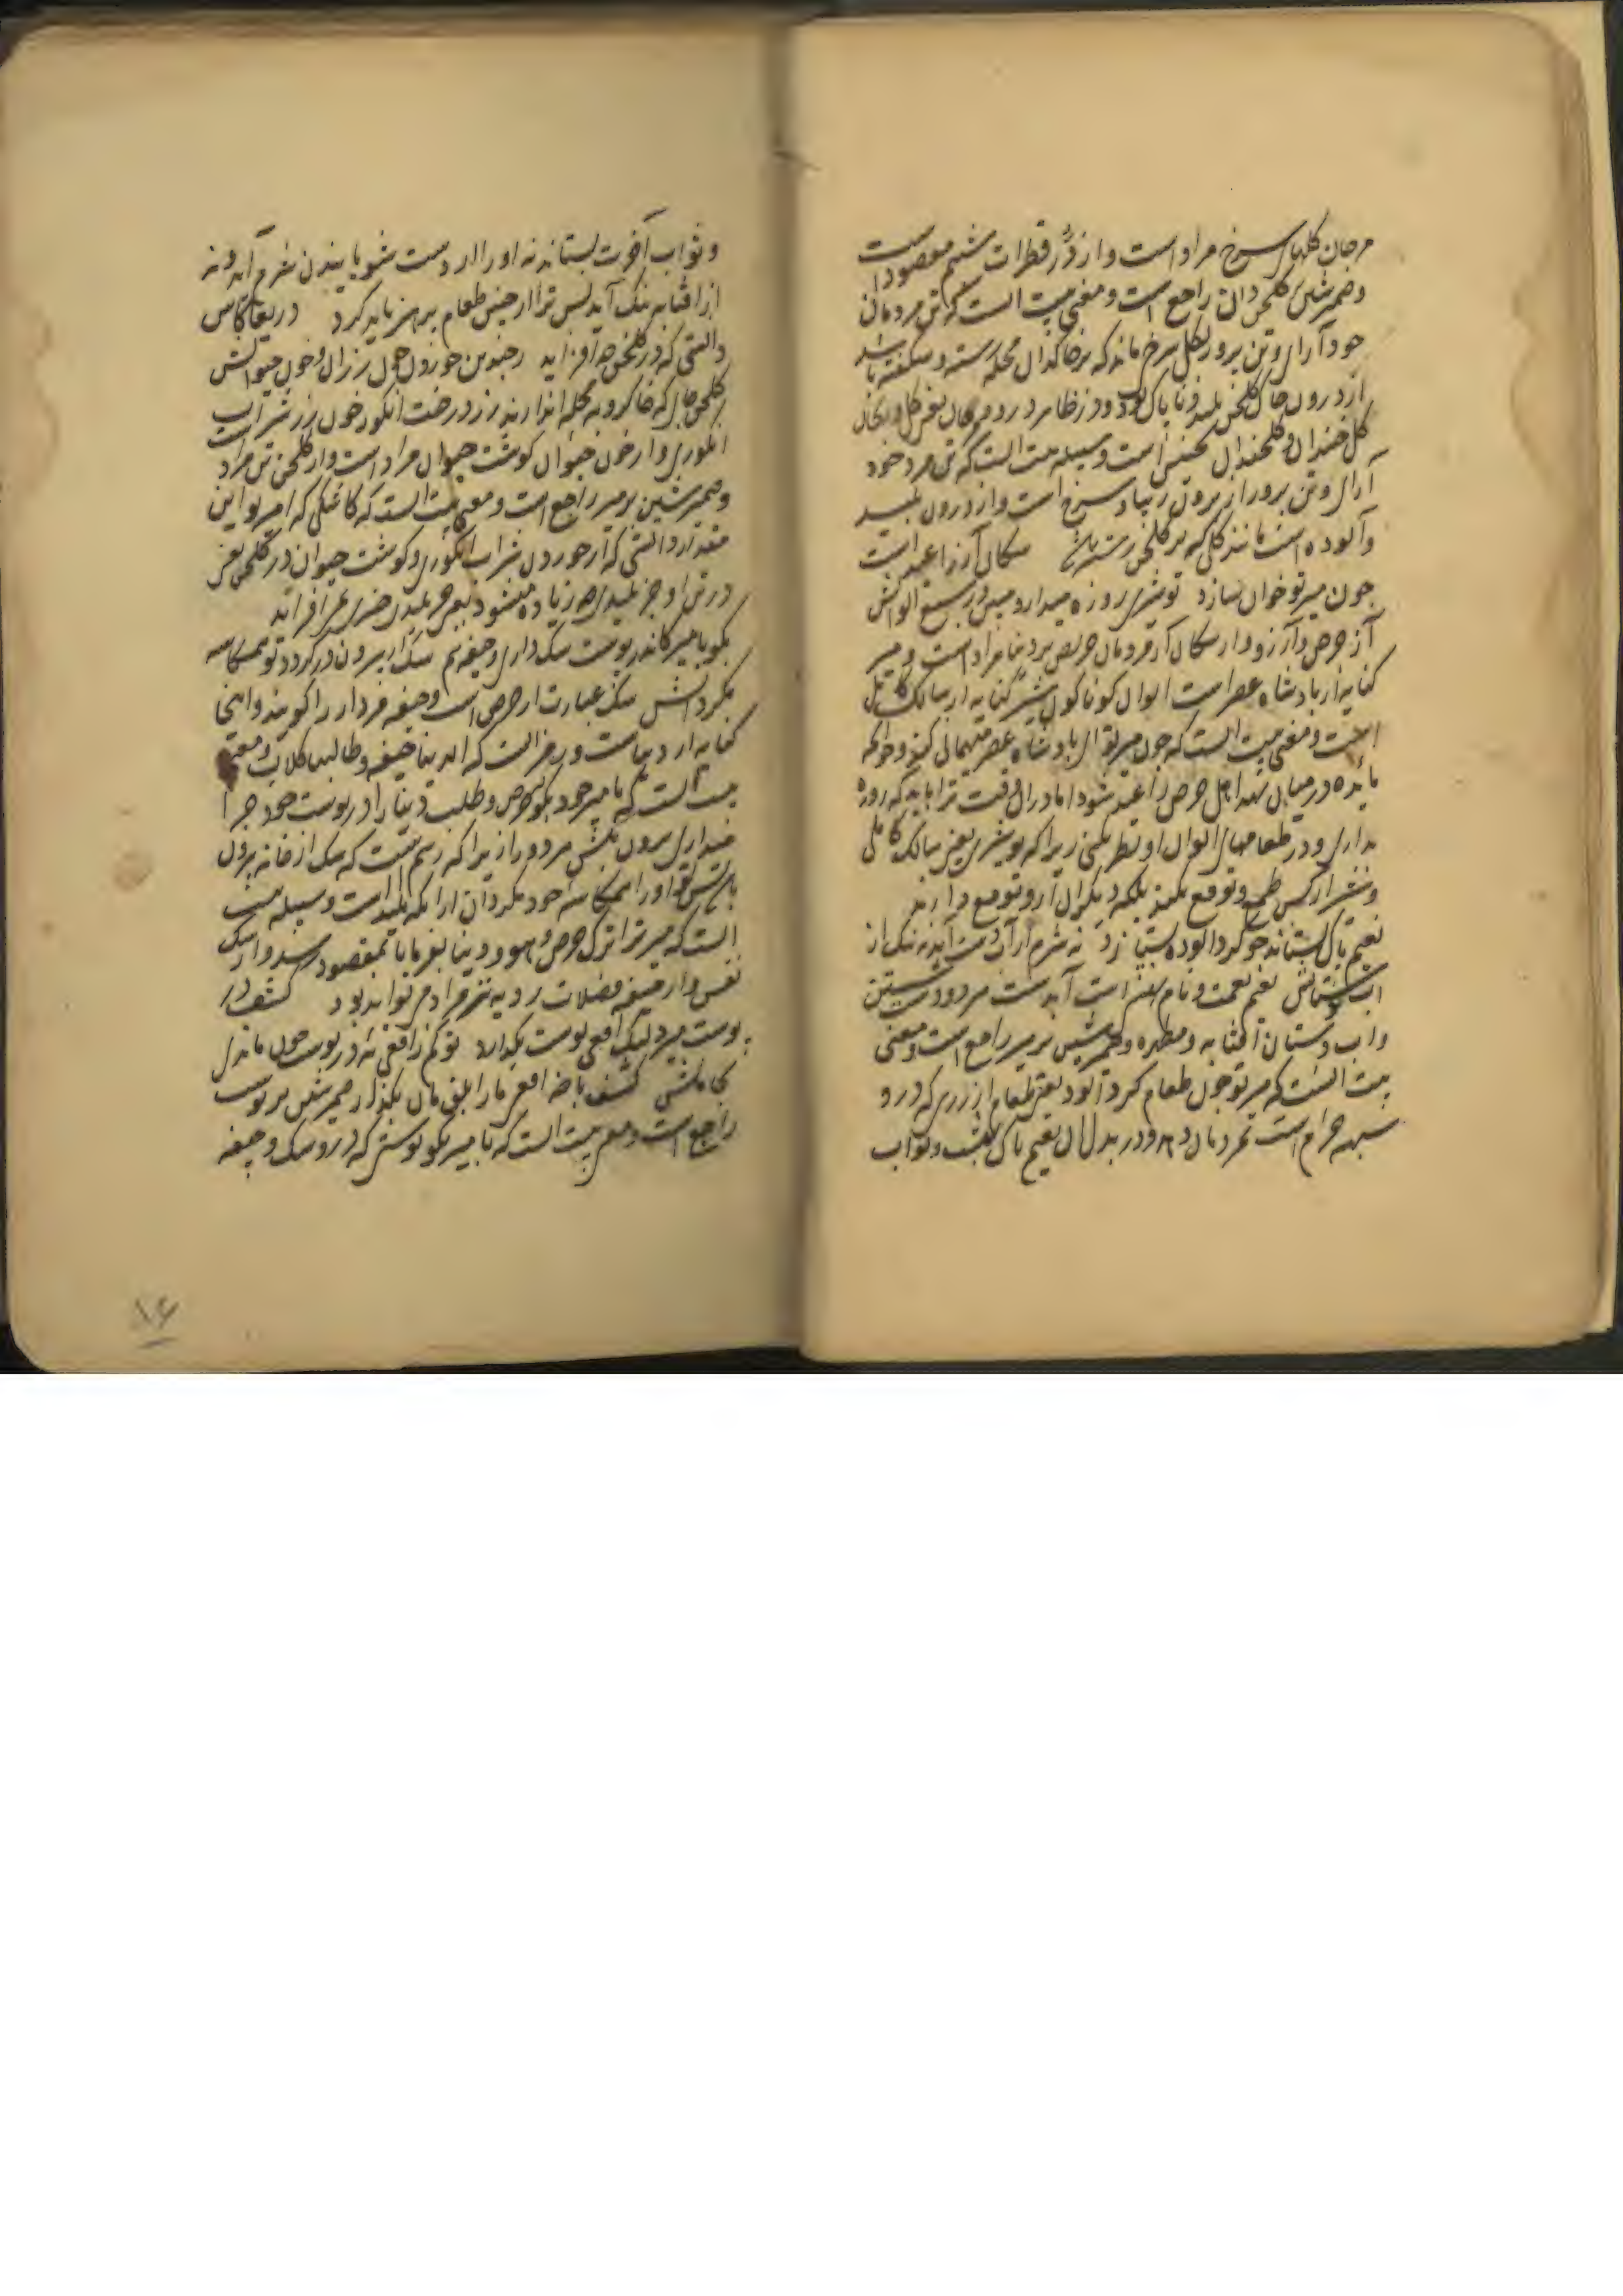 مرجان کلهای سرخ مراد است و از دُرّ قطرات شبنم مقصود است
و ضمیر شین کلخن دان راجع است و معنی بیت انست که تن مردمان
خود آرای و تن پرور بکل سرخ ماند که بر خاکدان محله رسته و شکفته باشد
از درون خاک کلخن پلید و ناپاک بود و در ظاهر در و مرجان یعنی کل و
کل خندان و کلخندان تجنیس است و سیله بیت انست که تن مرد خود
آرای و تن پرور از برون زیبا و سرخ است و از درون پلید
و آلوده است مانند کلی که بر کلخن رسته باشد سکان آز را عید است
چون میر تو خوان سازد تو شیری روزه میدار و مبین در سبع الوانش
آز حرص و آرزو و از سکان آز مردمان حریص بر دنیا مراد است و میر
کنایه از پادشاه عصر است الوان کوناکون شیر کنایه از سالک کامل
است و معنی بیت انست که چون میر تو ای پادشاه عصر مهمانی کند و خوانکه
مایده در میان نهد اهل حرص را عید شود اما در ان وقت ترا باید که روزه
بداری و در طعامهای الوان او نظر نکنی زیرا که تو شیری یعنی سالک کاملی
و شیر از کس طمع و توقع نکند بلکه دیکران ازو توقع دارند
نعیم پاک بستاند چو کرد آلوده بسپارد نه شرم از آب دست آید نه ننک از
اب دستانش نعیم نعمت و نام بهشت است آبدست مرد و دست شستن
و اب دستان آفتابه و مطهره و ضمیر شین بر میر راجع است و معنی
بیت انست که میر تو چون طعام کرد آلود یعنی طعام از زری که درو
شبهه حرام است بمردمان دهد و در بدل ان نعیم پاک بهشت و ثواب
و ثواب آخرت بستاند نه او را از دست شویانیدن شرم آید و نه
از آفتابه ننک آید پس ترا از چنین طعام پرهیز باید کرد دریغا کاس
دانستی که در کلخن چه افزاید ز چندین خوردن خون رزان و خون حیوانش
کلخن جای که خاکروبه محله اندازند رز درخت انکور خون رز شراب
انکوری و از خون حیوان کوشت حیوان مراد است و از کلخن تن مراد
و ضمیر شین بر میر راجع است و معنی بیت انست که کاشکی که امیر تو این
مقدار دانستی که از خوردن شراب انکوری و کوشت حیوان در کلخن یعنی
در تن او جز پلیدی چه زیاده میشود یعنی جز پلیدی چیزی نمی افزاید
بکو با میر کاندر پوست سک داری و جیفه هم سک از بیرون در کردد تو همکاسه
مکردانش سک عبارت از حرص است و جیفه مردار را کویند و اینجا
کنایه از دنیاست و در خبرست که الدنیا جیفه و طالبها کلاب و معنی
بیت انست که با میر خود بکو حرص و طلب دنیا را در پوست خود چرا
میداری برون کنش مردود زیرا که رسم نیست که سک از خانه برون
باشد پس تو او را همکاسه خود مکردان از انکه پلید است و سیله بیت
انست که میر ترا ترک حرص و هوا و دنیا بفرما یا تا بمقصود رسد و از سک
نفس و از جیفه فضلات رویه نیز مراد می تواند بود کشف در
پوست میرد لیک افعی پوست بکذارد تو کم ز افعی نه در پوست چون ماندی
بجا مانش کشف باخه افعی مار ابلق مان بکذار ضمیر شین بر پوست
راجع است و معنی بیت انست که با میر بکو پوستی که درو سک و جیفه
۱۶